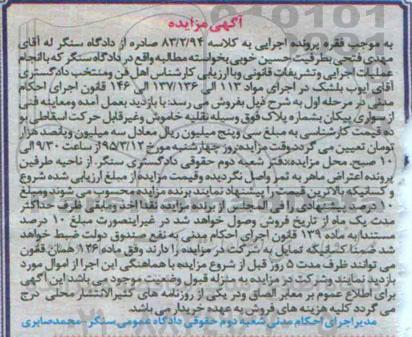 آگهی مزایده
به موجب فقره پرونده اجرایی به کلاسه ۸۳/۲/۹۴ صادره از دادگاه سنگر له آقای
مهدی فتحی بطرفیت حسین خوبی بخواسته مطالبه واقع در دادگاه سنگر که با انجام
عملیات اجرایی و تشریفات قانونی و با ارزیابی کارشناس اهل فن و منتخب دادگستری
آقای ایوب بلشک در اجرای مواد ۱۱۳ الی ۱۳۷/۱۲۶ الی ۱۴۶ قانون اجرای احکام
مدنی در مرحله اول به شرح ذیل بفروش می رسد: با بازدید بعمل آمده و معاینه فنی
از سواری پیکان بشماره پلاک فوق وسیله نقلیه خاموش و غیر قابل حرکت اسقاطی بو
ده قیمت کارشناسی به مبلغ سی و پنج میلیون ریال معادل سه میلیون و پانصد هزار
تومان تعیین می گردد وقت مزایده: روز چهارشنبه مورخ ۹۵/۳/۱۲ از ساعت ۹/۳۰ الی
۱۰ صبح. محل مزایده: دفتر شعبه دوم حقوقی دادگستری سنگر. از ناحیه طرفین
پرونده اعتراض ماهر به ثمر واصل نگردیده و قیمت مزایده از مبلغ ارزیابی شده شروع
و کسانیکه بالاترین قیمت را پیشنهاد نمایند برنده مزایده محسوب می شوند و مبلغ
۱۰ درصد پیشنهادی را فی المجلس از برنده مزایده نقدا اخذ و مابقی ظرف حداکثر
مدت یک ماه از تاریخ فروش وصول خواهد شد در غیر اینصورت مبلغ ۱۰ درصد
مستندا به ماده ۱۲۹ قانون اجرای احکام مدنی به نفع صندوق دولت ضبط خواهد
شد ضمنا کسانیکه تمایل به شرکت در مزایده را دارند وفق ماده ۱۳۶ همان قانون
می توانند ظرف مدت ۵ روز قبل از شروع مزایده با هماهنگی این اجرا از اموال مورد
بازدید نمایند و شرکت در مزایده به منزله قبول وضعیت موجود می باشد این آگهی
برای اطلاع عموم بر معابر الصاق و در یکی از روزنامه های کثیرالانتشار محلی درج
می گردد کلیه هزینه های فروش به عهده خریدار می باشد.
مدیر اجرای احکام مدنی شعبه دوم حقوقی دادگاه عمومی سنگر - محمد صابری